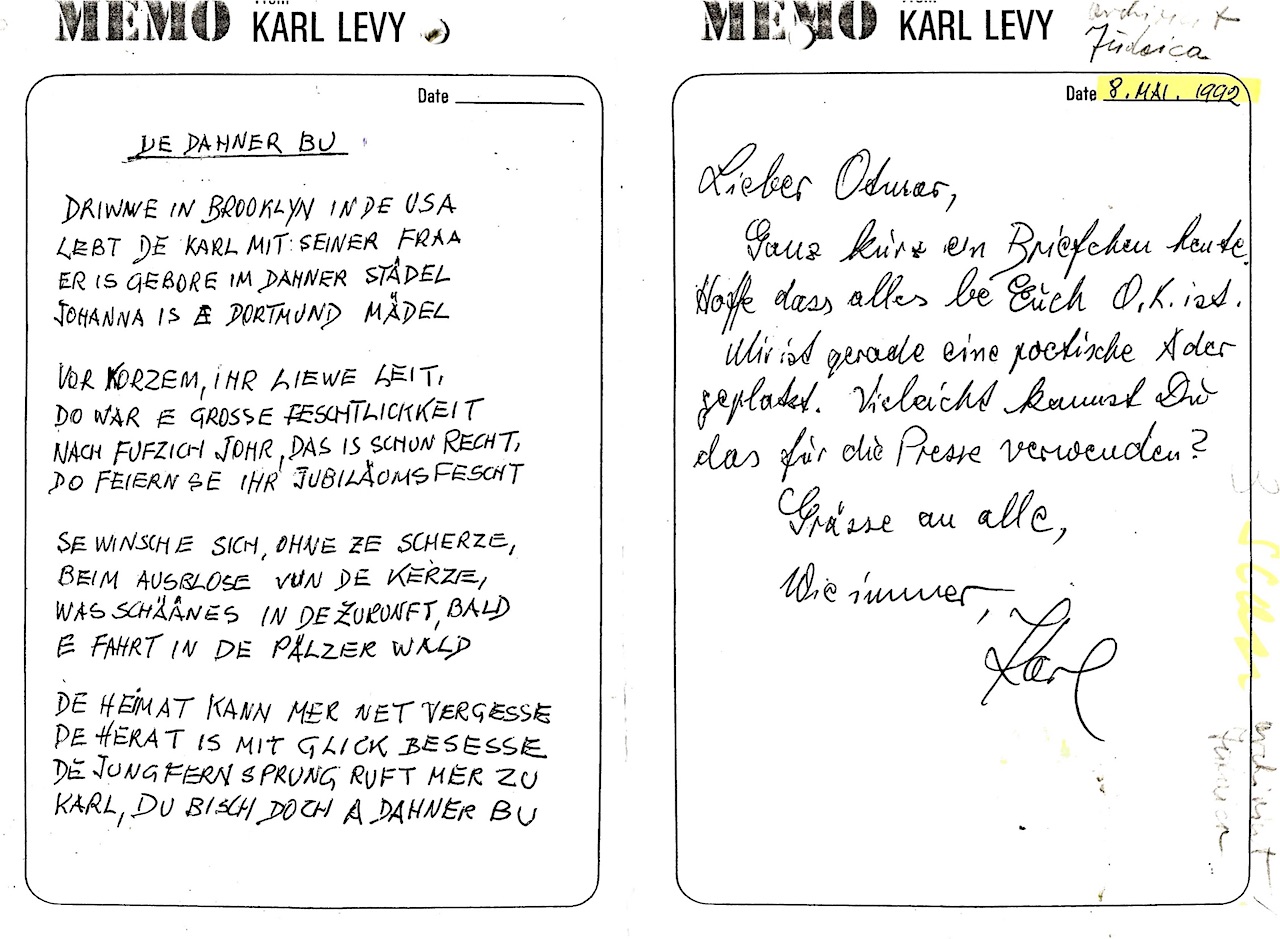 MEMO From KARL LEVY
Date
DE DAHNER BU
DRIWWE IN BROOKLYN IN DE USA
LEBT DE KARL MIT SEINER FRAA
ER IS GEBORE IM DAHNER STÄDEL
JOHANNA IS E DORTMUND MÄDEL
VOR KORZEM, IHR LIEWE LEIT,
DO WAR E GROSSE FESCHTLICKKEIT
NACH FUFZICH JOHR, DAS IS SCHUN RECHT,
DO FEIERN SE IHR JUBILÄUMSFESCHT
SE WINSCHE SICH, OHNE ZE SCHERZE,
BEIM AUSBLOSE VUN DE KERZE,
WAS SCHÄÄNES IN DE ZUKUNFT, BALD
E FAHRT IN DE PÄLZER WALD
DE HEIMAT KANN MER NET VERGESSE
DE HERAT IS MIT GLICK BESESSE
DE JUNGFERNSPRUNG RUFT MER ZU
KARL, DU BISCH DOCH A DAHNER BU
MEMO From KARL LEVY
archiviert
Judaica
Date 8. MAI. 1992
Lieber Otmar,
Ganz kurz ein Briefchen heute.
Hoffe dass alles bei Euch O.K. ist.
Mir ist gerade eine poetische Ader
geplatzt. Vieleicht kannst Du
das für die Presse verwenden?
Grüsse an alle,
Wie immer,
Karl
scan
archiviert